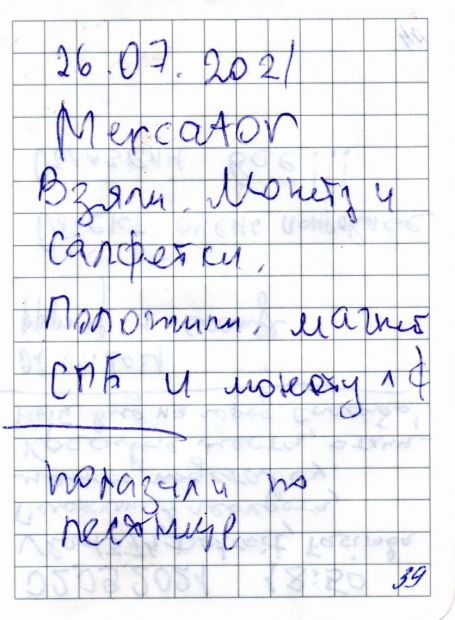 26.07.2021
Mercator
Взяли. Монету и
салфетки.
Положили. магнит
СПБ и монету 1 ₵
полазили по
лестнице
39